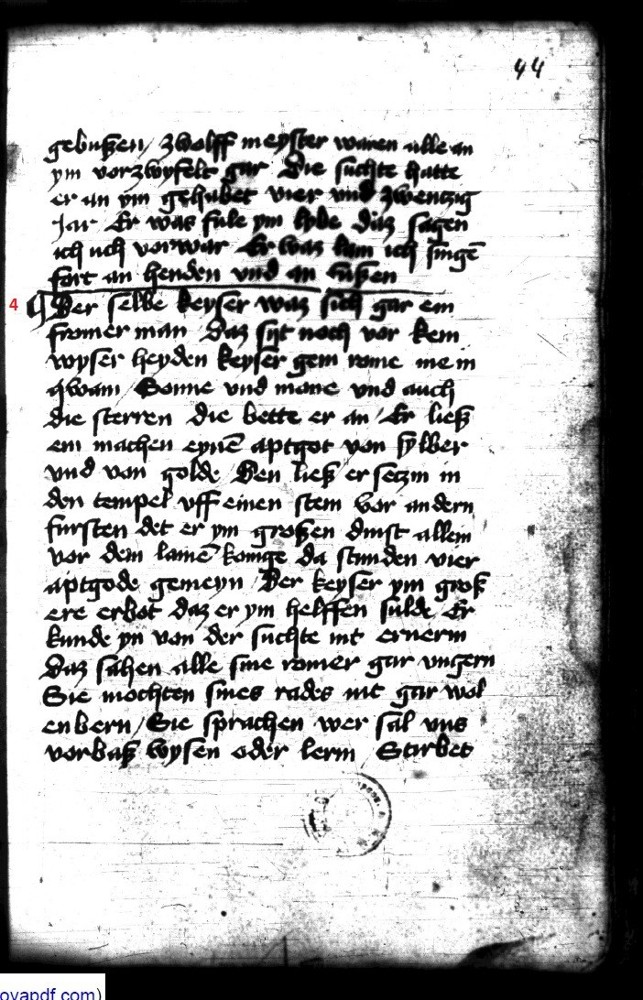 44
gebußen / zwolff meyster waren alle an
ym vorzwyfelt gar Die suchte hatte
er an ym gehabet vier vnd zwentzig
jar Er was fule ym lybe daz sagen
ich uch vorwar Er waz lam ich singē
fort an henden vnd an fußen
4
Der selbe keyser waz sich gar ein
fromer man Daz sijt noch vor kein
wyser heyden keyser gein rome nie in
qwam / Sonne vnd mone vnd auch
die sterren die bette er an / Er ließ
ein machen eynē aptgot von sylber
vnd von golde Den ließ er seczin in
den tempel vff einen stein vor andern
fursten det er ym großen dinst allein
vor dem lamē konige da stunden vier
aptgode gemeyn / Der keyser ym groß
ere erbot daz er ym helffen sulde Er
kunde yn von der suchte nit ernerin
Daz sahen alle sine romer gar vngern
Sie mochten sines rades nit gar wol
enbern / Sie sprachen wer sal vns
vorbaß wysen oder lerin / Stirbet
ovapdf.com)